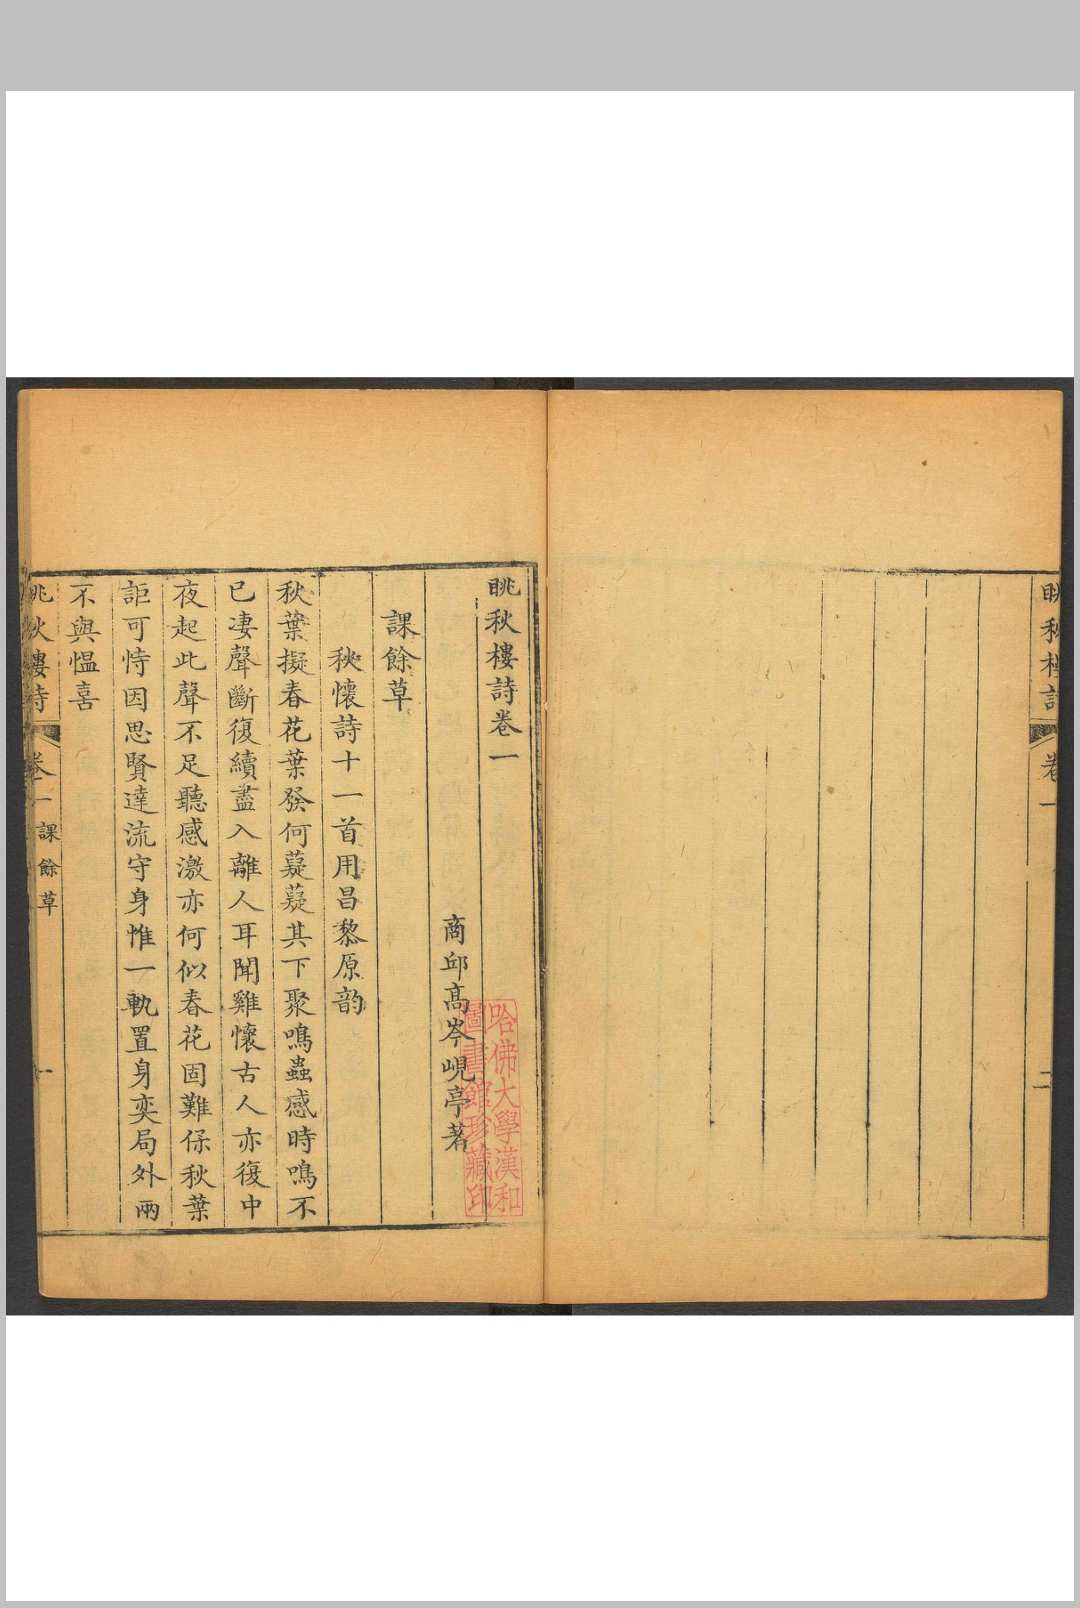 眺秋樓詩
卷一
二
眺秋樓詩卷一
商邱高岑峴亭著
哈佛大學漢和
圖書館珍藏印
課餘草
秋懷詩十一首用昌黎原韵
秋葉擬春花葉發何薿薿其下聚鳴蟲感時鳴不
已凄聲斷復續盡入離人耳聞雞懷古人亦復中
夜起此聲不足聽感激亦何似春花固難保秋葉
詎可恃因思賢達流守身惟一軌置身奕局外兩
不與愠喜
眺秋樓詩
卷一
課餘草
一